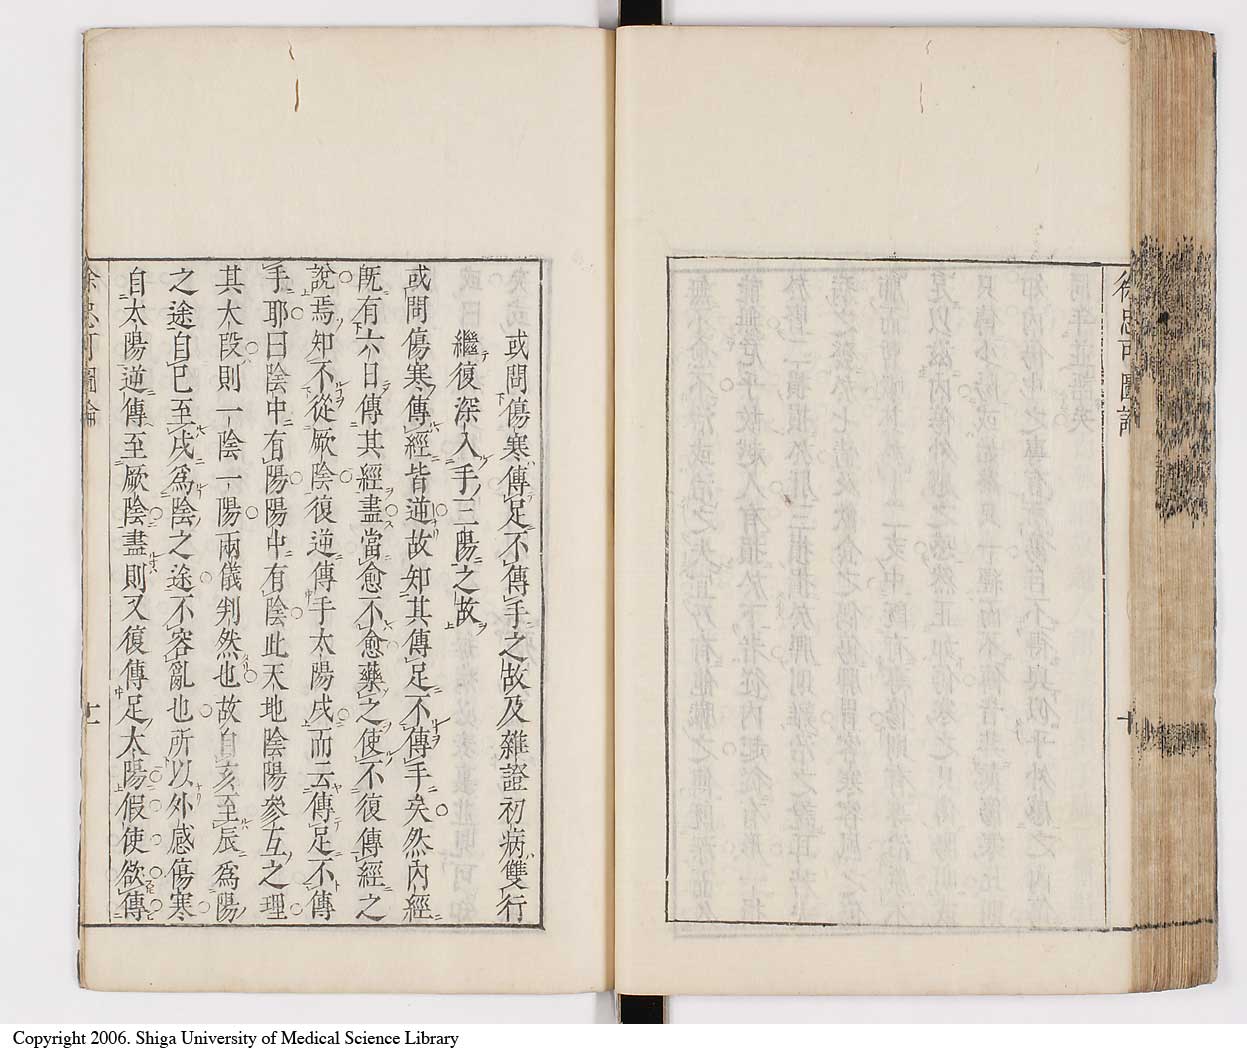 徐忠可圖論
十
或問傷寒傳足不傳手之故及雜證初病雙行
繼復深入手三陽之故
或問傷寒傳經皆逆故知其傳足不傳手矣然內經
既有六日傳其經盡當愈不愈藥之使不復傳經之
說焉知不從厥陰復逆傳手太陽戌而云傳足不傳
手耶曰陰中有陽陽中有陰此天地陰陽參互之理
其大段則一陰一陽兩儀判然也故自亥至辰爲陽
之途自巳至戌爲陰之途不容亂也所以外感傷寒
自太陽逆傳至厥陰盡則又復傳足太陽假使欲傳
徐忠可圖論
十一
Copyright 2006. Shiga University of Medical Science Library